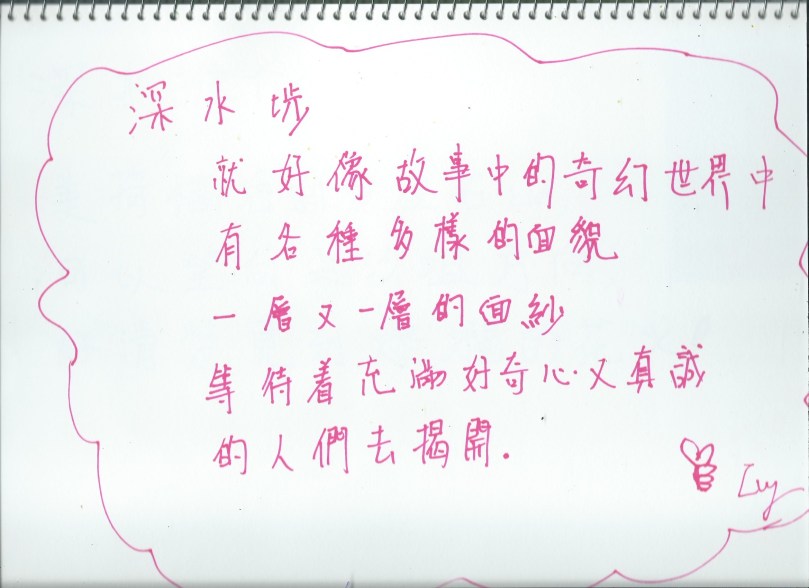 深水埗
就好像故事中的奇幻世界中
有各種多樣的面貌
一層又一層的面紗
等待着充滿好奇心又真誠
的人們去揭開.